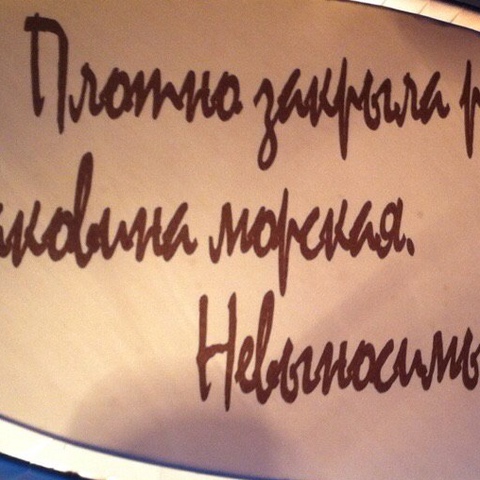 Плотно закрыла р
аковина морская.
Невыносимы